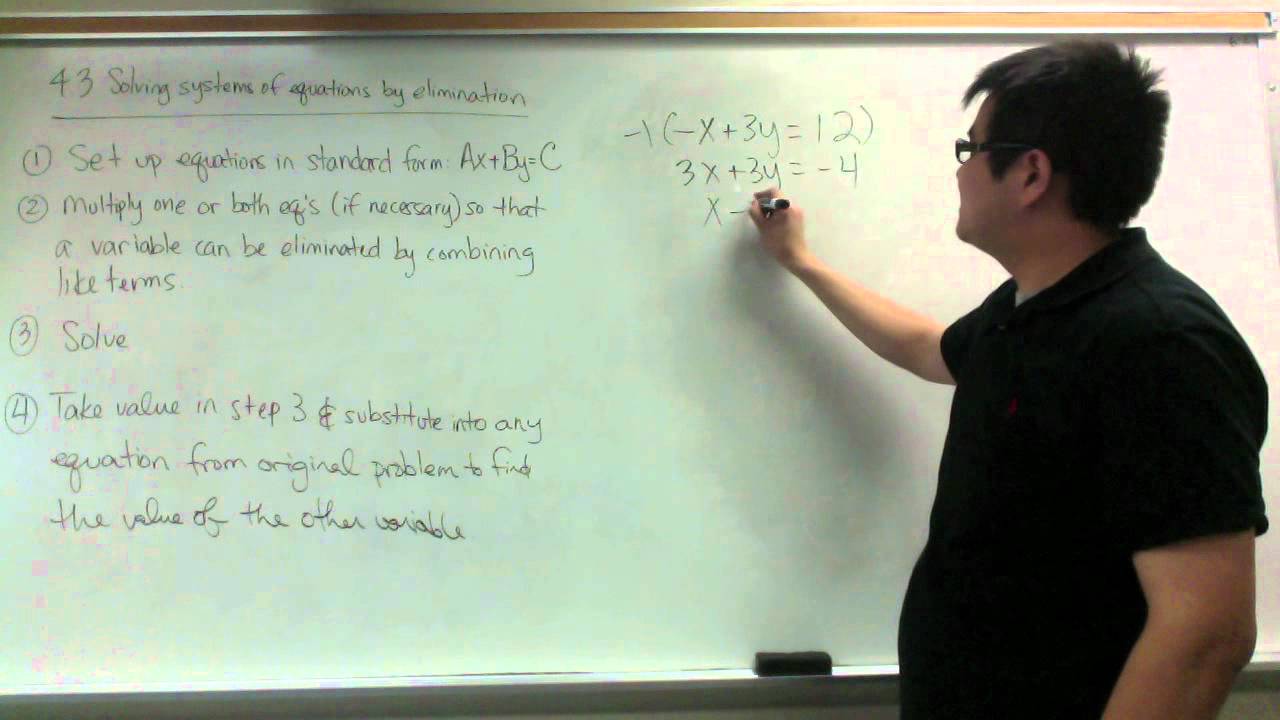 4.3 Solving systems of equations by elimination
① Set up equations in standard form: Ax+By=C
② Multiply one or both eq's (if necessary) so that
a variable can be eliminated by combining
like terms.
③ Solve
④ Take value in step 3 & substitute into any
equation from original problem to find
the value of the other variable
-1(-x+3y=12)
3x+3y=-4
x-